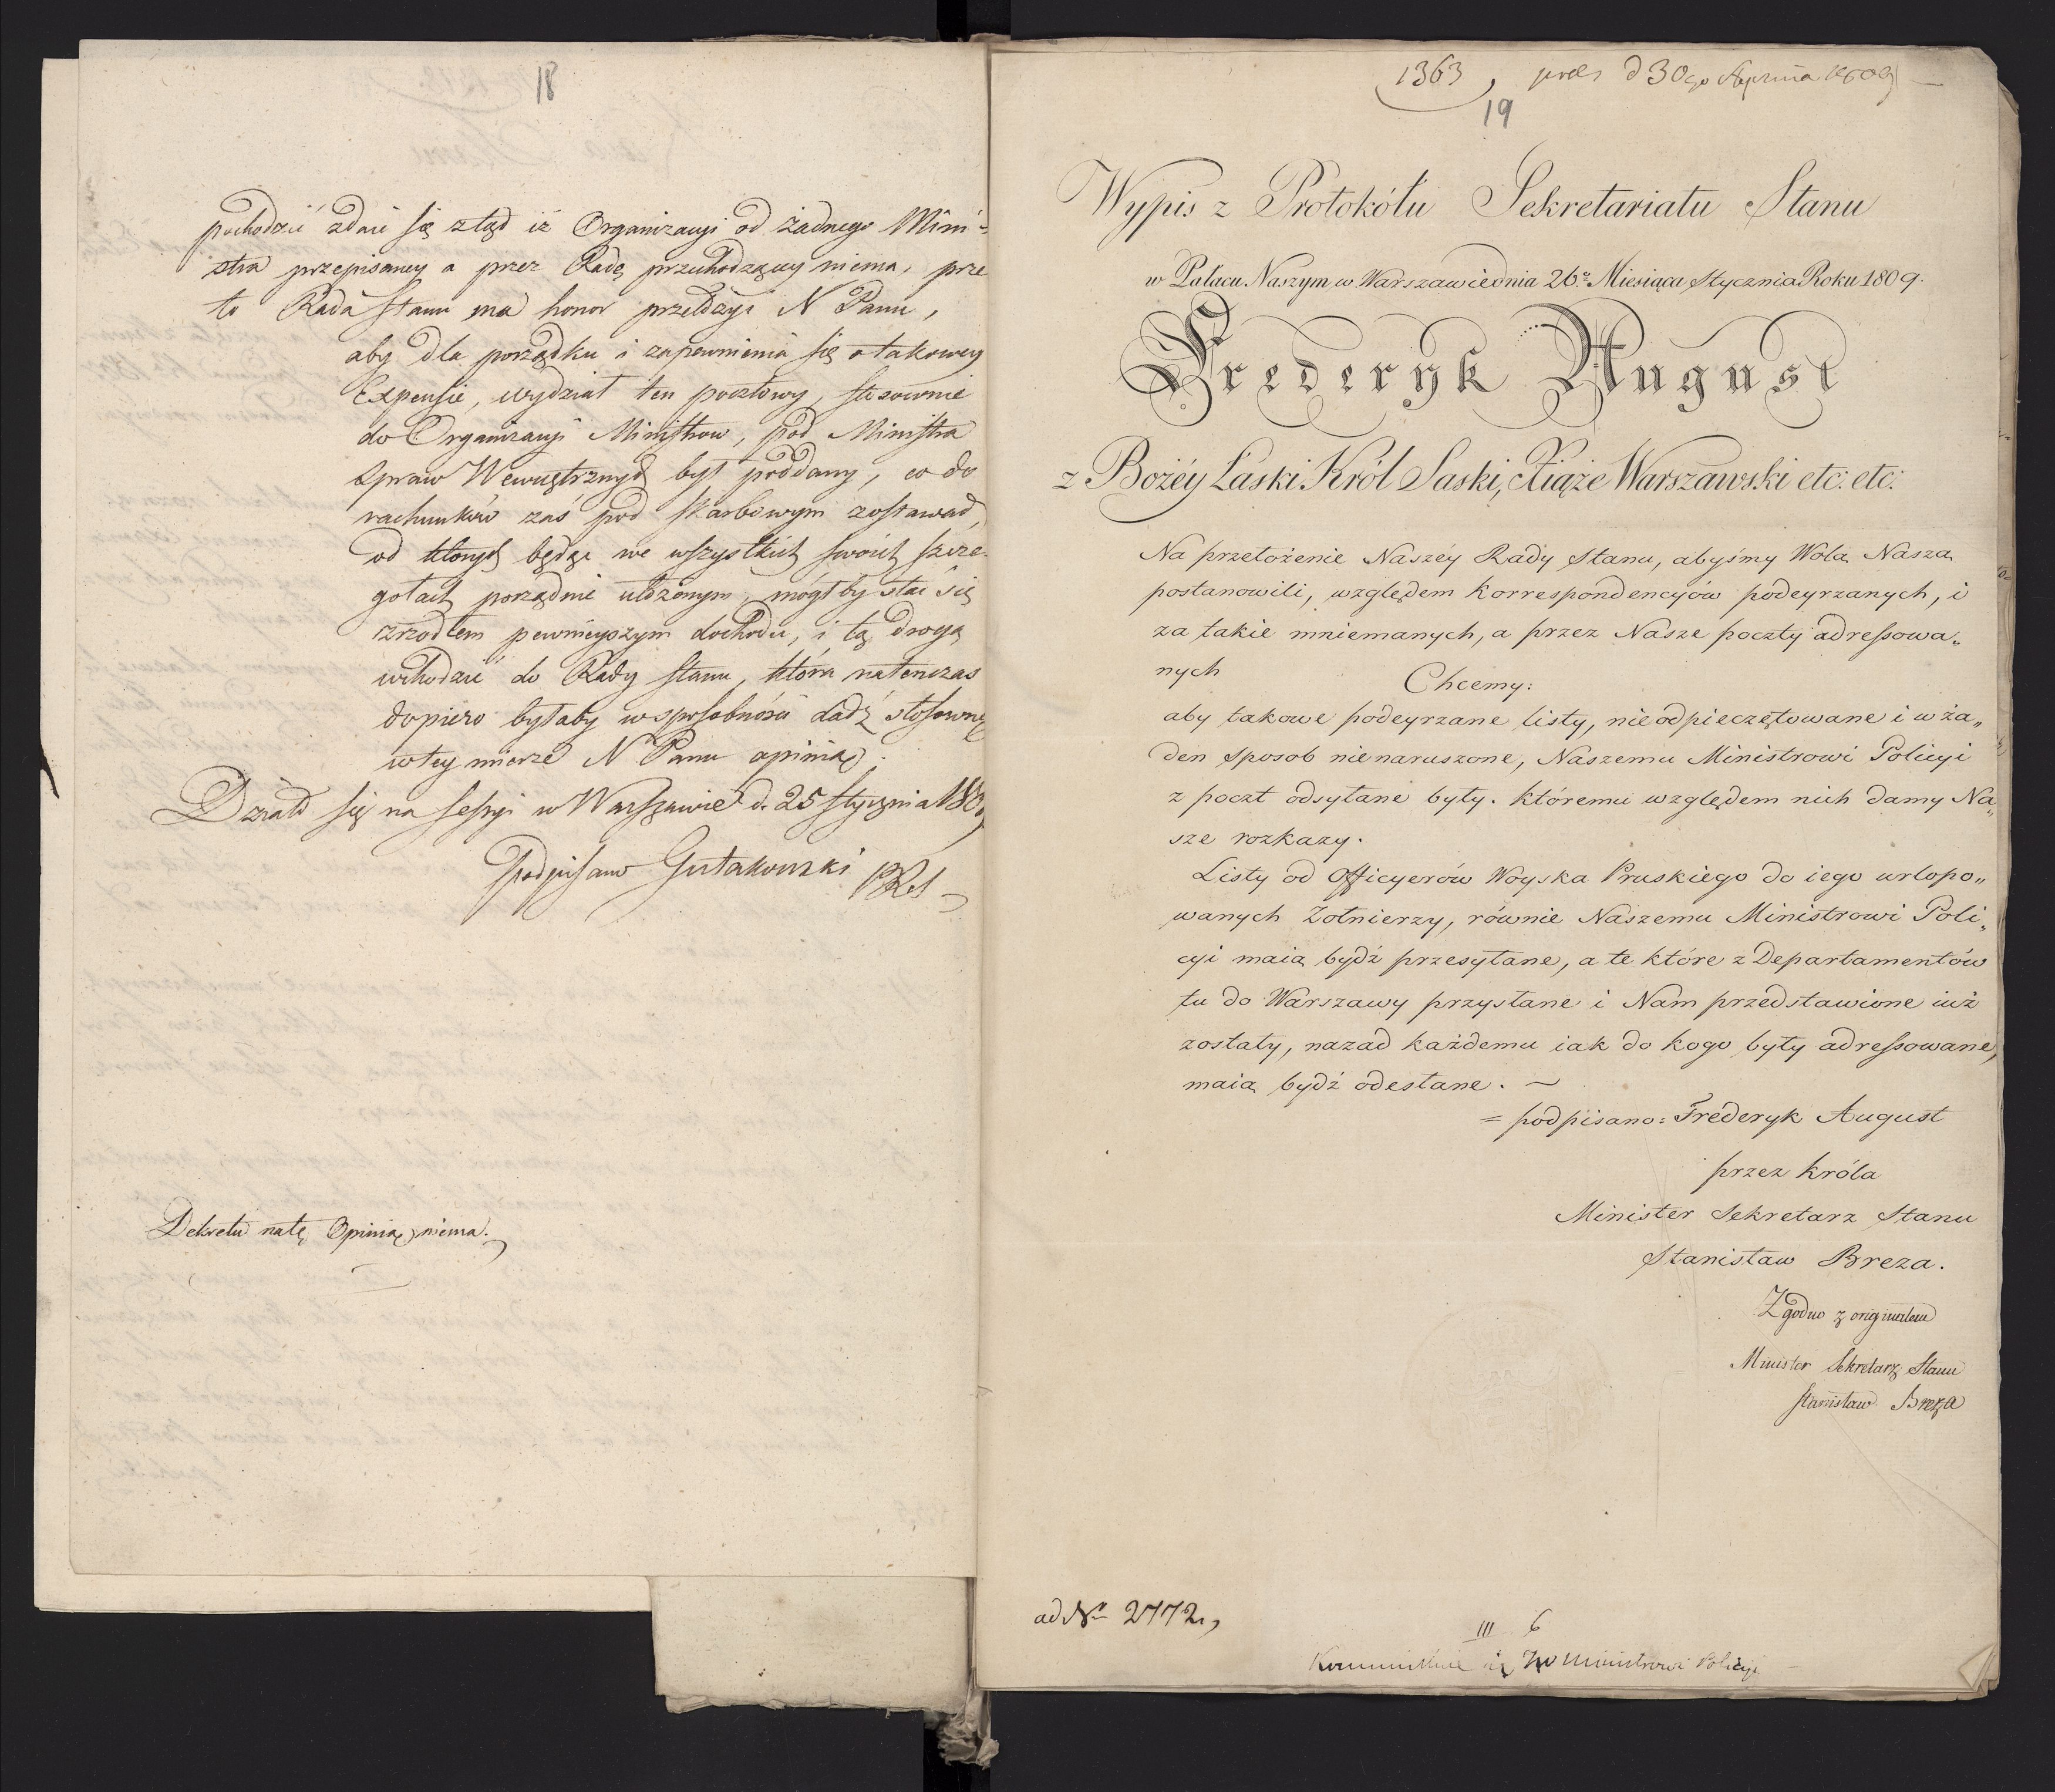 18
pochodzić zdaie się ztąd iż Organizacyi od żadnego Mini-
stra przepisaney a przez Radę przechodzącey niema, prze
to Rada Stanu ma honor przełożyć N Panu,
aby dla porządku i zapewnienia się o takowey
Expensie, wydział ten pocztowy, stosownie
do Organizacyi Ministrow, pod Ministra
Spraw Wewnętrznych był poddany, co do
rachunków zaś pod skarbowym zostawał,
od których będąc we wszystkich swoich szcze-
gołach porządnie ułożonym, mógłby stać się
zrzodłem pewnieyszym dochodu, i tą drogą
wchodzić do Rady Stanu, która natenczas
dopiero byłaby w sposobności dadź stosowną
w tey mierze N Panu opinią.
Działo się na Sessyi w Warszawie d. 25 Stycznia 1809
Podpisano Gutakowski PRS
Dekretu na tę Opinią niema.
1363, d 30go 1809
19
Wypis z Protokółu Sekretariatu Stanu
w Pałacu Naszym w Warszawie dnia 26o Miesiąca Stycznia Roku 1809.
Frederyk August
z Bożéy Łaski Król Saski, Xiąże Warszawski etc: etc:
Na przełożenie Naszéy Rady Stanu, abyśmy Wolą Naszą
postanowili, względem Korrespondencyów podeyrzanych, i
za takie mniemanych, a przez Nasze poczty adressowa„
nych
Chcemy:
aby takowe podeyrzane listy, nieodpieczętowane i w ża„
den sposob nienaruszone, Naszemu Ministrowi Policyi
z poczt odsyłane były. któremu względem nich damy Na„
sze rozkazy.
Listy od Officyerów Woyska Pruskiego do iego urlopo„
wanych Żołnierzy, równie Naszemu Ministrowi Poli„
cyi maią bydź przesyłane, a te które z Departamentów
tu do Warszawy przysłane i Nam przedstawione iuż
zostały, nazad każdemu iak do kogo były adressowane,
maią bydź odesłane. —
= podpisano: Fréderyk August
przez króla
Minister Sekretarz Stanu
Stanisław Breza.
Zgodno z originałem
Minister Sekretarz Stanu
Stanisław Breza
ad Nr 2772,
III 6
Ministrowi Policyi